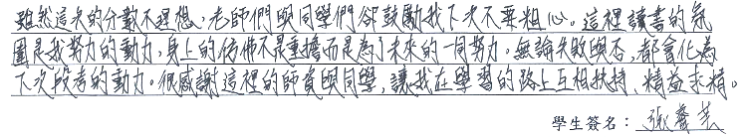 雖然這次的分數不理想，老師們與同學們卻鼓勵我下次不要粗心。這裡讀書的氛
圍是我努力的動力，身上的彷彿不是重擔而是為了未來的一同努力。無論失敗與否，都會化為
下次段考的動力。很感謝這裡的師資與同學，讓我在學習的路上互相扶持、精益求精。
學生簽名：張